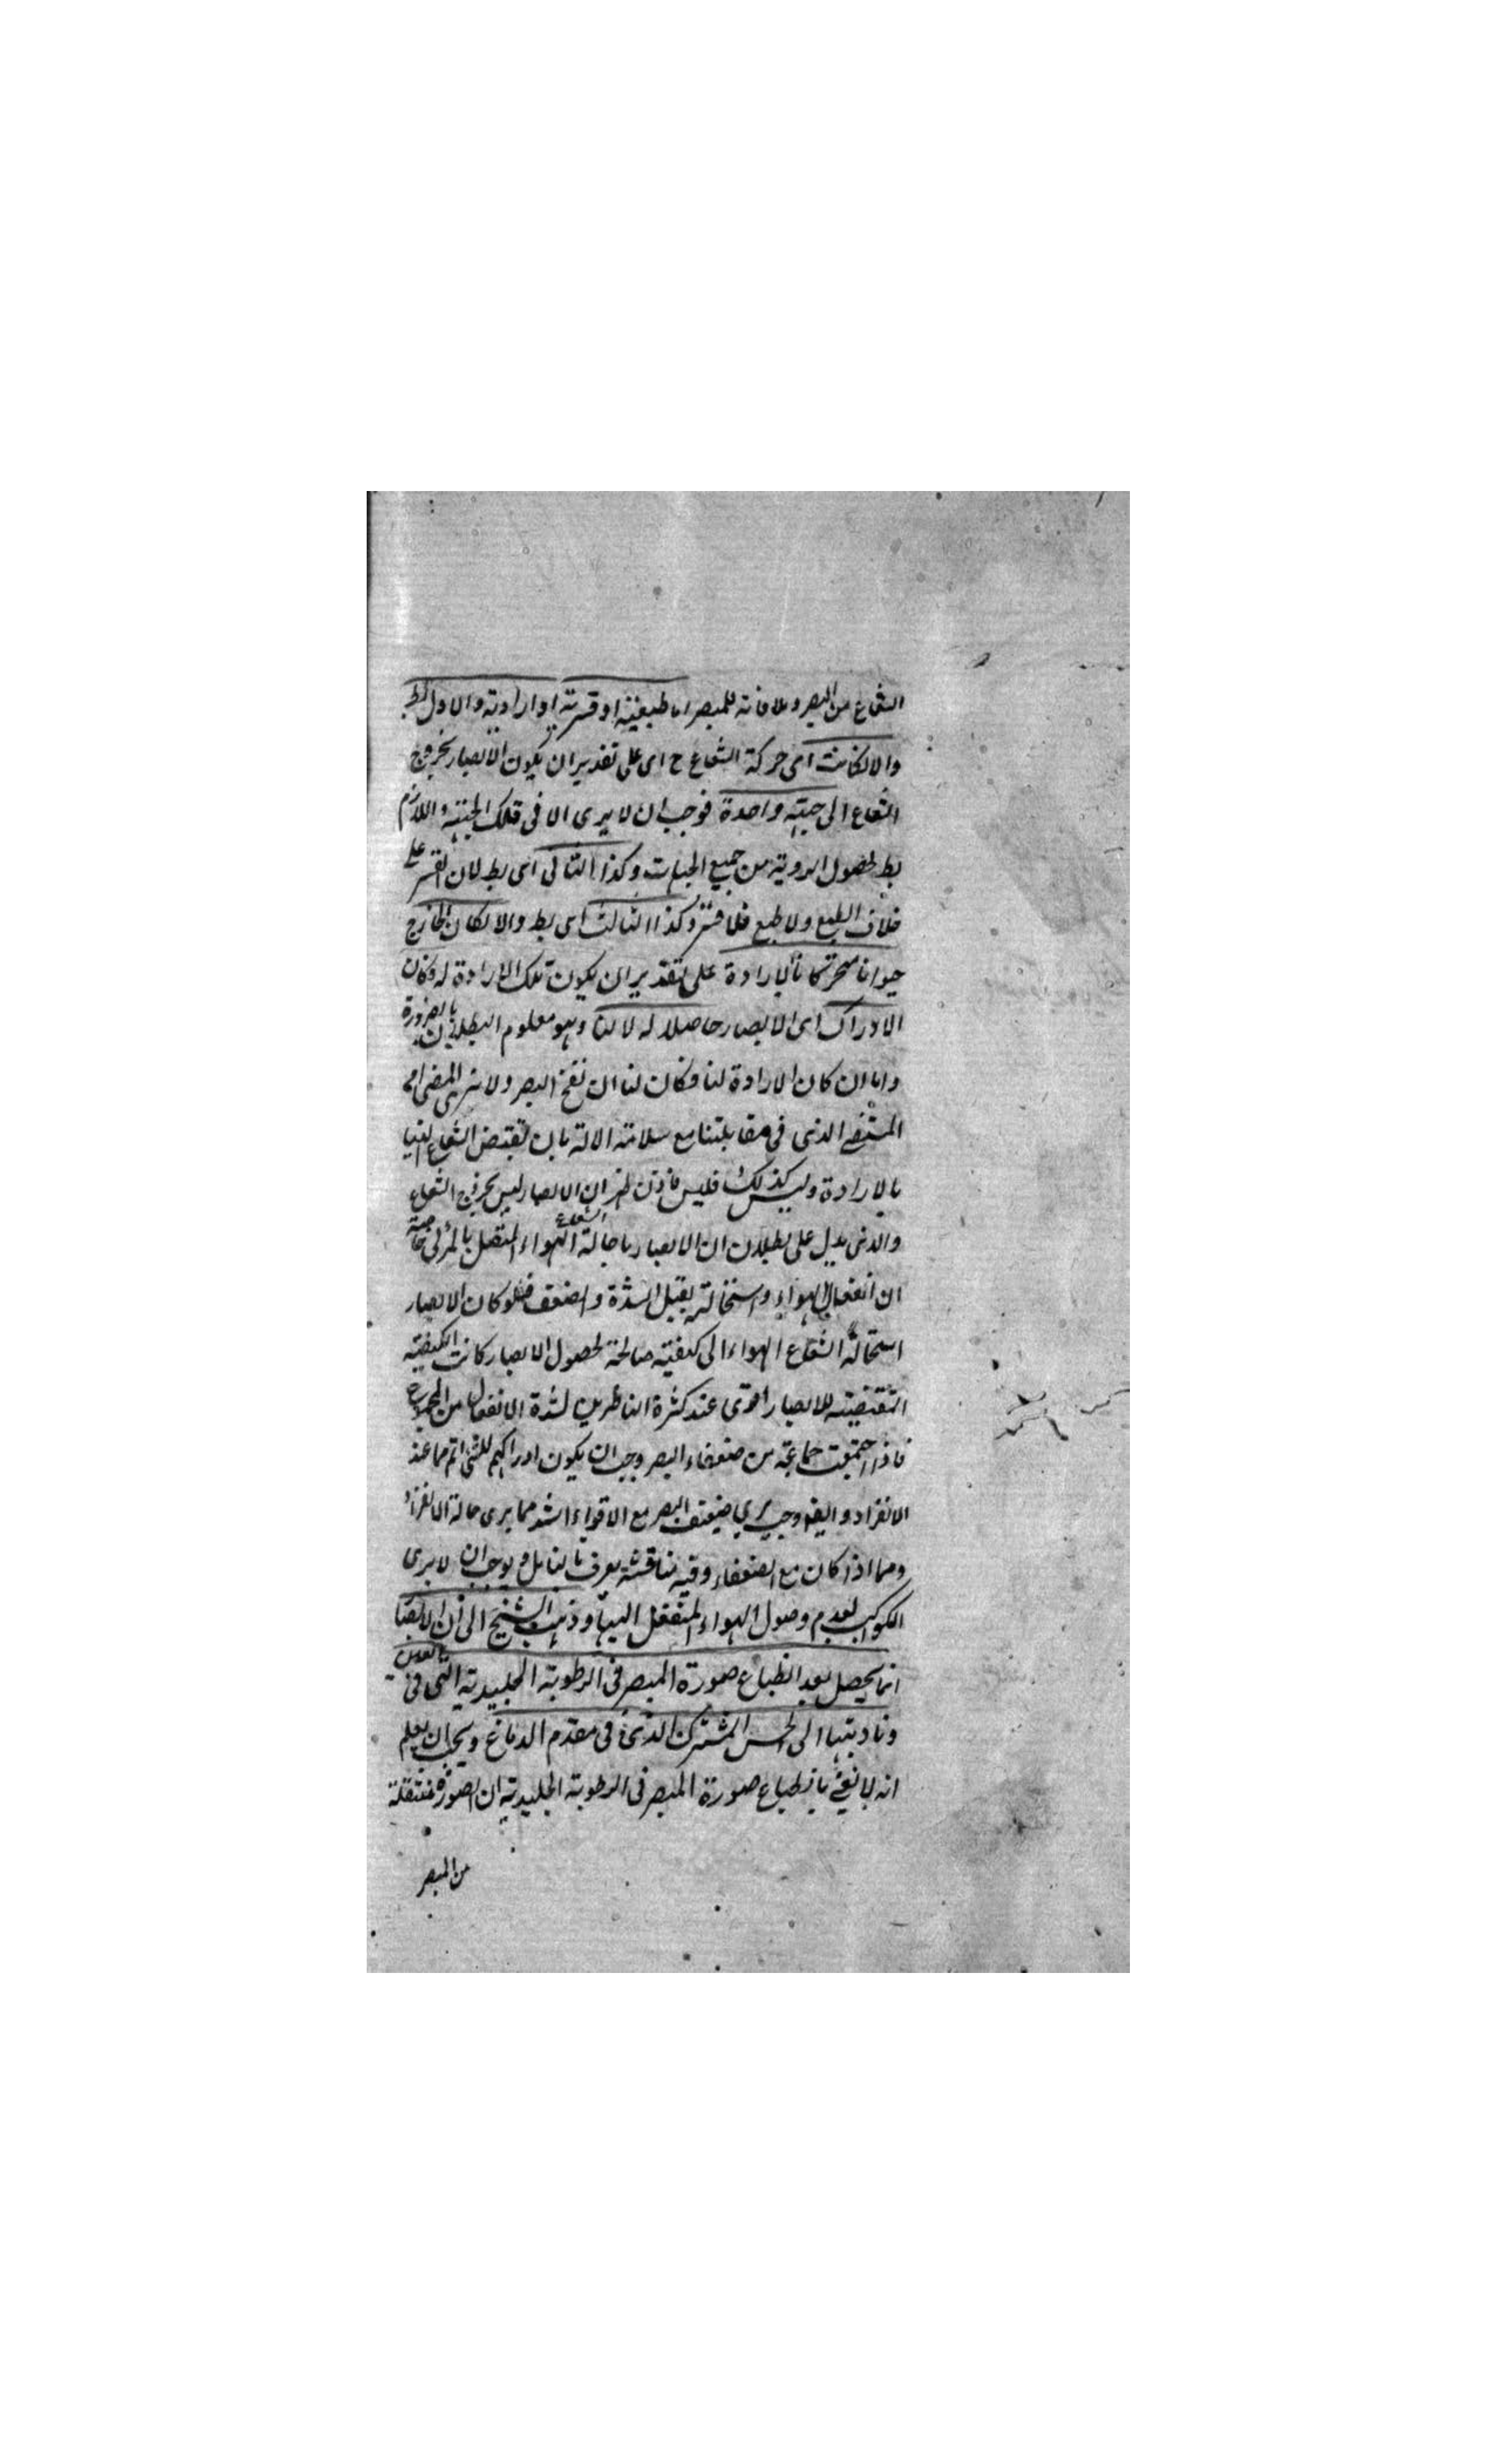 الشعاع من البصر وملاقاته للمبصر اما طبيعية او قسرية او ارادية والاول بط
والا لكانت اى حركة الشعاع ح اى على تقدير ان يكون الابصار بخروج
الشعاع الى جهة واحدة فوجب ان لا يرى الا فى تلك الجهة واللازم
بط لحصول الروية من جميع الجهات وكذا الثانى اى بط لان القسر على
خلاف الطبع ولا طبع فلا قسر وكذا الثالث اى بط والا لكان الخارج
حيوانا متحركا بالارادة على تقدير ان يكون تلك الارادة له وكان
الادراك اى الابصار حاصلا له لا لنا وهو معلوم البطلان بالضرورة
واما ان كان الارادة لنا فكان لنا ان نفتح البصر ولا نرى المضى او
المستضى الذى فى مقابلتنا مع سلامة الالة بان نقبض الشعاع الينا
بالارادة وليس كذلك فليس فاذن ان الابصار ليس بخروج الشعاع
والذى يدل على بطلان ان الابصار باحالة الشعاع الهواء المتصل بالمرئى خاصة
ان انفعال الهواء واستحالته يقبل الشدة والضعف فلو كان الابصار
استحالة الشعاع الهواء الى كيفية صالحة لحصول الابصار كانت الكيفية
المقتضية للابصار اقوى عند كثرة الناظرين لشدة الانفعال من المجموع
فاذا اجتمعت جماعة من ضعفاء البصر وجب ان يكون ادراكهم للشئ اتم مما عند
الانفراد وايضا وجب يرى ضعيف البصر مع الاقوياء اشد مما يرى حالة الانفراد
ومما اذا كان مع الضعفاء وفيه مناقشة يعرف بالتامل ويوجب ان لا يرى
الكواكب لعدم وصول الهواء المنفعل اليها وذهب الشيخ الى ان الابصار
انما يحصل بعد انطباع صورة المبصر فى الرطوبة الجليدية التى فى العين
وتاديتها الى الحس المشترك الذى فى مقدم الدماغ ويجب ان يعلم
انه لا نعنى بانطباع صورة المبصر فى الرطوبة الجليدية ان الصورة منتقلة
من المبصر